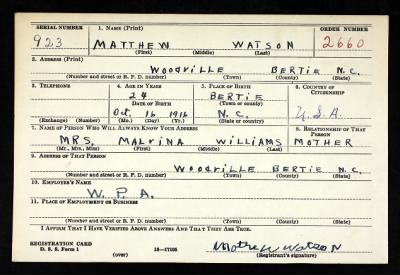 SERIAL NUMBER 1. NAME (Print) ORDER NUMBER
923 MATTHEW WATSON 2660
(First) (Middle) (Last)
2. ADDRESS (Print)
Woodville BERTIE N.C.
(Number and street or R. F. D. number) (Town) (County) (State)
3. TELEPHONE 4. AGE IN YEARS 5. PLACE OF BIRTH 6. COUNTRY OF CITIZENSHIP
24 BERTIE
DATE OF BIRTH (Town or county)
Oct. 16 1916 N.C. U.S.A.
(Exchange) (Number) (Mo.) (Day) (Yr.) (State or country)
7. NAME OF PERSON WHO WILL ALWAYS KNOW YOUR ADDRESS 8. RELATIONSHIP OF THAT PERSON
MRS. MALVINA WILLIAMS MOTHER
(Mr., Mrs., Miss) (First) (Middle) (Last)
9. ADDRESS OF THAT PERSON
Woodville BERTIE N.C.
(Number and street or R. F. D. number) (Town) (County) (State)
10. EMPLOYER'S NAME
W. P. A.
11. PLACE OF EMPLOYMENT OR BUSINESS
(Number and street or R. F. D. number) (Town) (County) (State)
I AFFIRM THAT I HAVE VERIFIED ABOVE ANSWERS AND THAT THEY ARE TRUE.
REGISTRATION CARD
D. S. S. Form 1 16—17105 Mathew Watson
(over) (Registrant's signature)